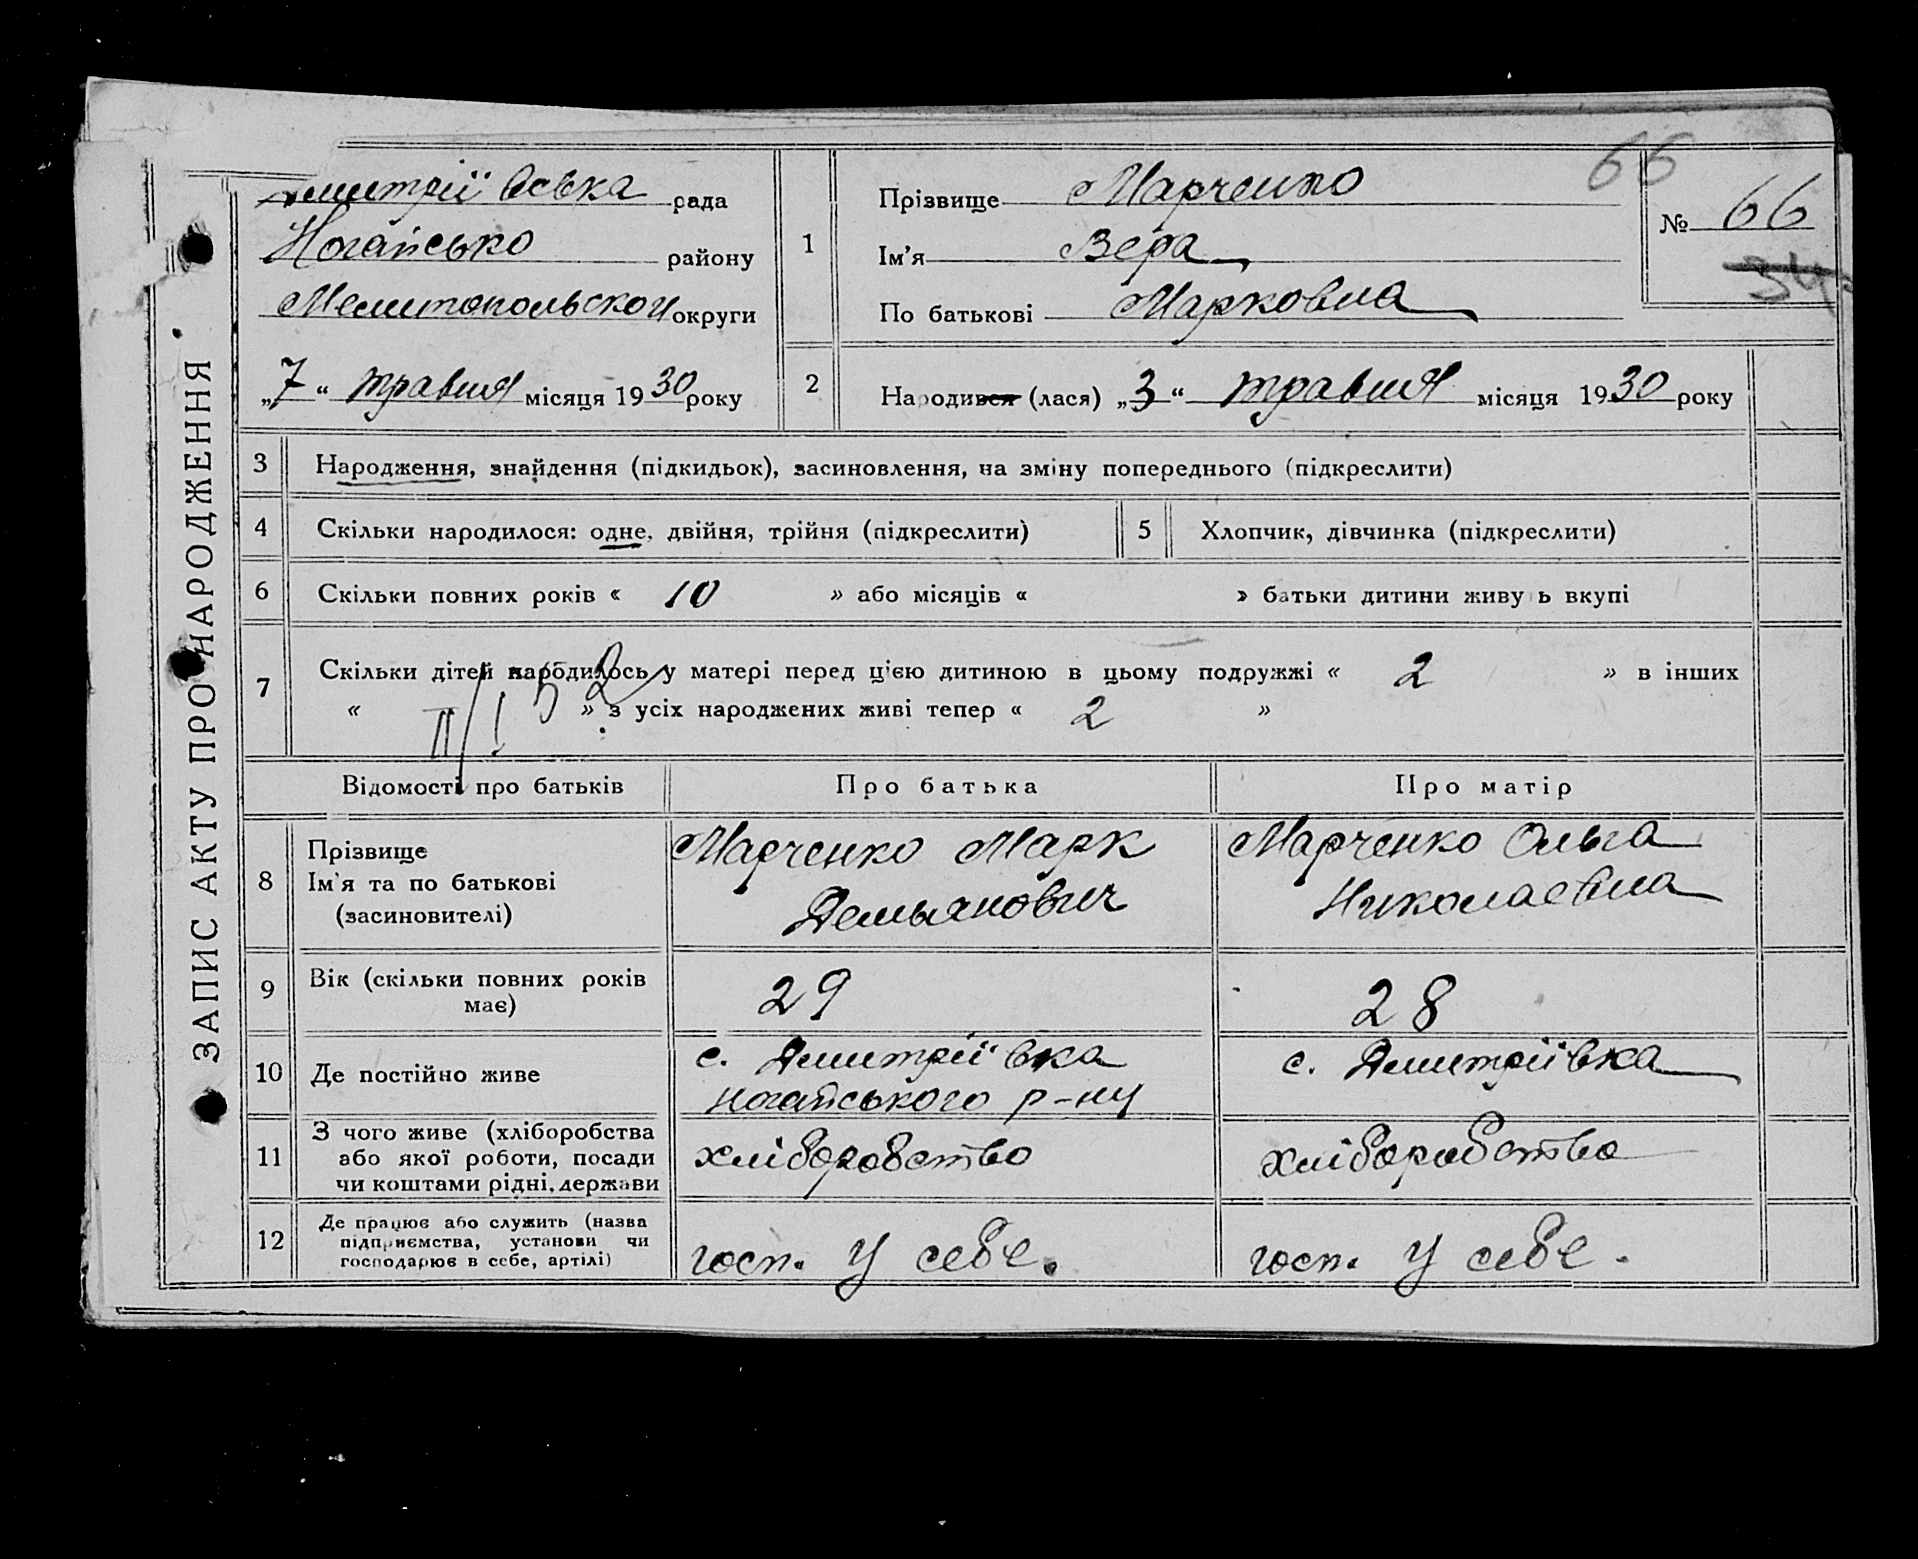 ЗАПИС АКТУ ПРО НАРОДЖЕННЯ
Дмитріївська рада
Ногайсько району
Мелитопольскои округи
„7“ травня місяця 1930 року
66
№ 66
34
1 Прізвище Марченко
Ім'я Вера
По батькові Марковна
2 Народився (лася) „3“ травня місяця 1930 року
3 Народження, знайдення (підкидьок), засиновлення, на зміну попереднього (підкреслити)
4 Скільки народилося: одне, двійня, трійня (підкреслити) 5 Хлопчик, дівчинка (підкреслити)
6 Скільки повних років « 10 » або місяців « » батьки дитини живуть вкупі
7 Скільки дітей народилось у матері перед цією дитиною в цьому подружжі « 2 » в інших
« » з усіх народжених живі тепер « 2 »
Відомості про батьків Про батька Про матір
8 Прізвище Ім'я та по батькові (засиновителі)
Марченко Марк
Демьянович
Марченко Ольга
Николаевна
9 Вік (скільки повних років має) 29 28
10 Де постійно живе
с. Дмитріївка
ногайського р-ну
с. Дмитріївка
11 З чого живе (хліборобства
або якої роботи, посади
чи коштами рідні, держави
хліборобство хліборобство
12 Де працює або служить (назва
підприємства, установи чи
господарює в себе, артілі)
госп. у себе. госп. у себе.